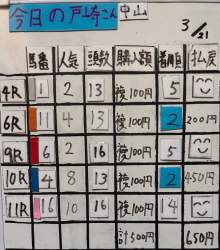 今日の戸崎さん 中山
3/21
馬番 人気 頭数 購入額 着順 払戻
4R 1 2 13 複100円 5
6R 11 4 13 複100円 2 200円
9R 6 2 16 複100円 5
10R 4 8 13 複100円 2 450円
11R 16 10 16 複100円 14
計500円 650円